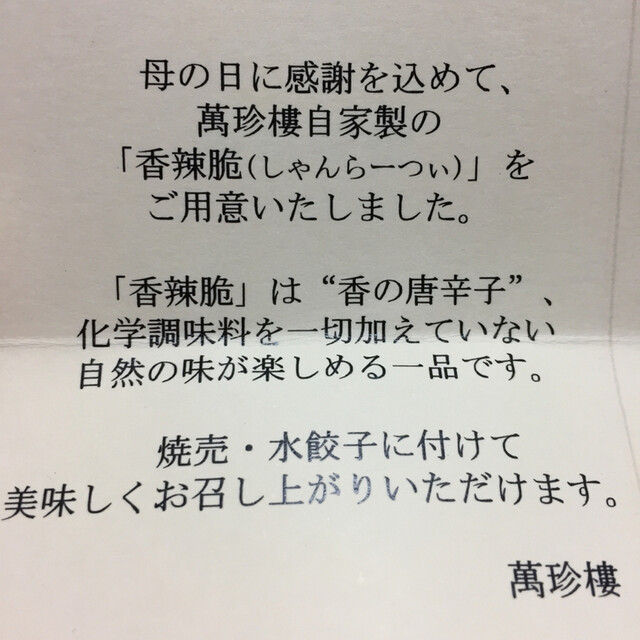 母の日に感謝を込めて、
萬珍樓自家製の
「香辣脆(しゃんらーつぃ)」を
ご用意いたしました。
「香辣脆」は“香の唐辛子”、
化学調味料を一切加えていない
自然の味が楽しめる一品です。
焼売・水餃子に付けて
美味しくお召し上がりいただけます。
萬珍樓